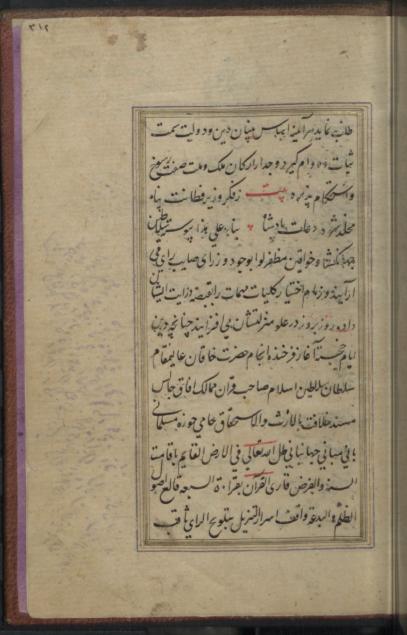 ۳۱۲
طلب نماید هر آینه اساس مبنیان دین و دولت سمت
ثبات و دوام گیرد و جدار ارکان ملک و ملت صفت رسوخ
و استحکام پذیرد بیت ز فکر وزیر فطانت پناه
مخلد شود دعات پادشاه بناء علی هذا پیوسته سلاطین
جهانگشا و خواقین مظفر لوا بوجود وزرای صایب رای
آرایند و زمام اختیار کلیات مهمات را بقبضه درایت ایشان
داده روز بروز در علو منزلتشان می افزایند چنانچه درین
ایام خجسته آغاز فرخنده انجام حضرت خاقان عالیمقام
سلطان سلاطین اسلام صاحب قران ممالک آفاق جالس
مسند خلافت بالارث والاستحقاق حامی حوزه مسلمانی
بانی مبانی جهانبانی ظل الله تعالی فی الارض القایم باقامت
السنة والفرض قاری القرآن بقراءة السبعه قالع اصول
الظلم والبدعه واقف اسرار التنزیل بتلویح الرای ثاقب